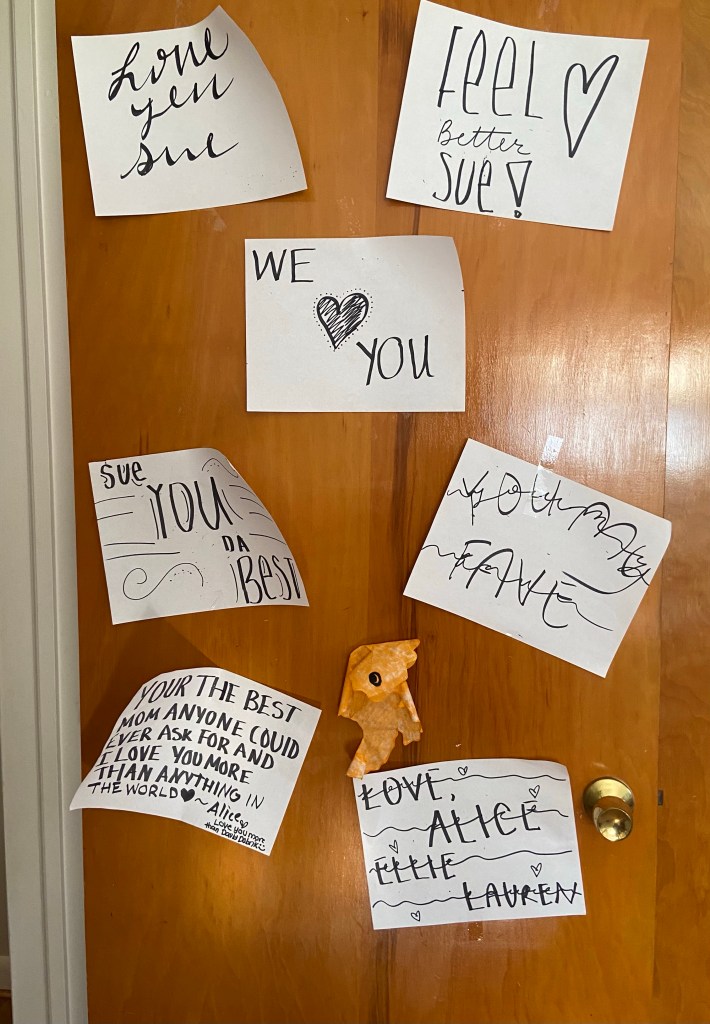 Love
you
sue
FEEL
Better
SUE!
WE
YOU
SUE
YOU
DA
BEST
YOU MY
FAVE
YOUR THE BEST
MOM ANYONE COULD
EVER ASK FOR AND
I LOVE YOU MORE
THAN ANYTHING IN
THE WORLD ♥ ~ Alice
Love you more
than David Dobrik
LOVE,
ALICE
ELLIE
LAUREN